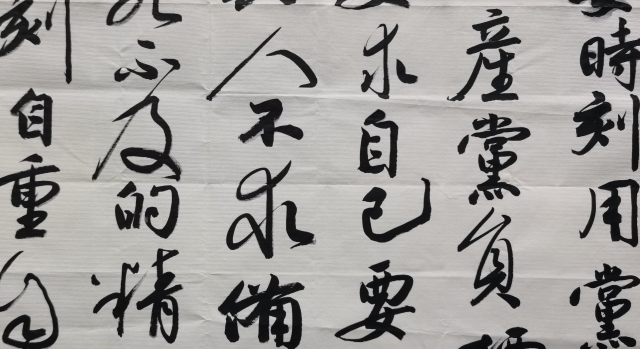 時刻用黨
產黨員
求自己要
人不求備
不及的精
刻自重自